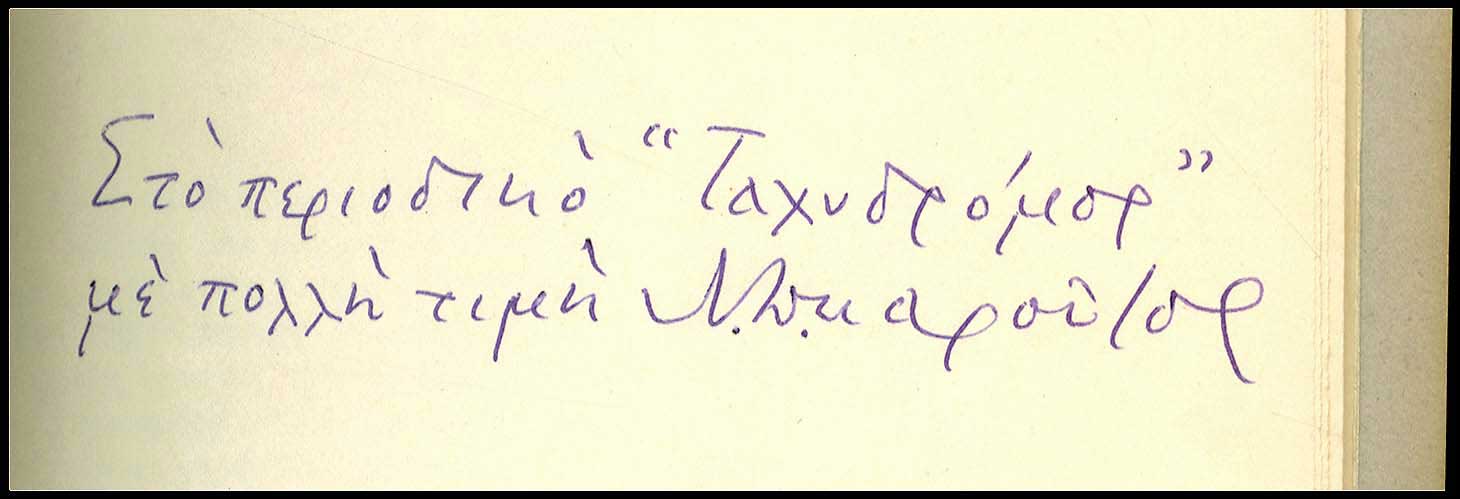 Στὸ περιοδικὸ “Ταχυδρόμος”
μὲ πολλὴ τιμὴ Ν.Δ. Καροῦζος